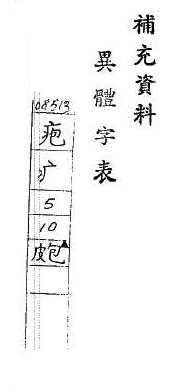 補充資料
異體字表
08513
疤
疒
5
10
皰